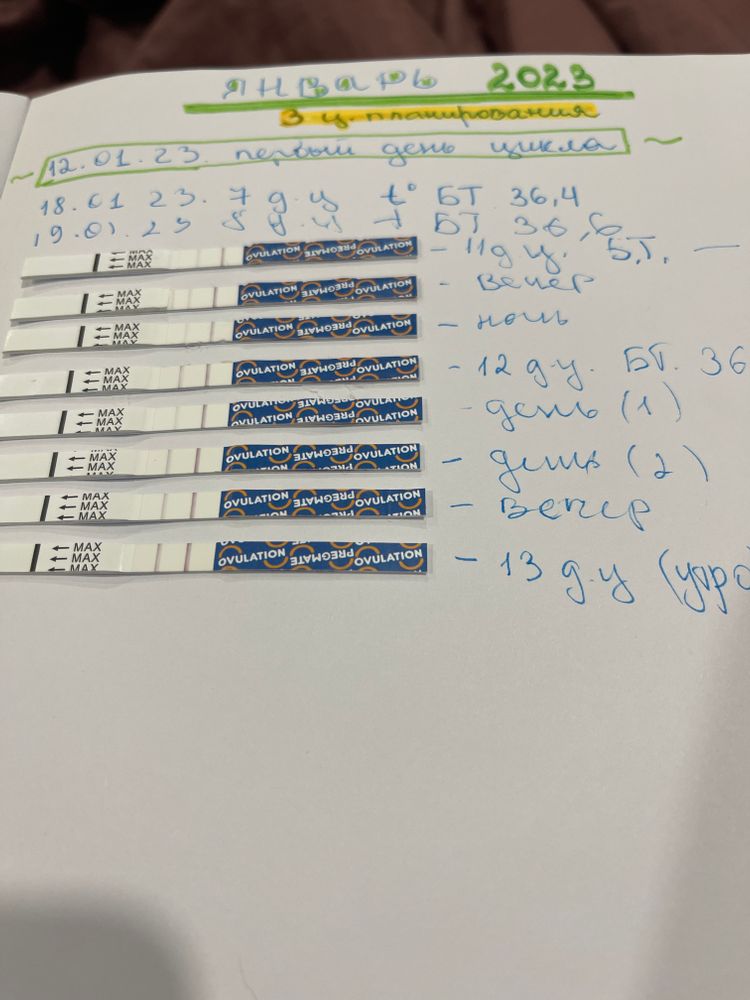 ЯНВАРЬ 2023
3 ц. планирования
~ 12.01.23. первый день цикла ~
18.01 23. 7 д.ц t° БТ 36,4
19.01.23 8 д.ц t БТ 36,6
MAX MAX OVULATION PREGMATE OVULATION - 11 д ц. Б.Т. —
MAX MAX OVULATION PREGMATE OVULATION - вечер
MAX MAX OVULATION PREGMATE OVULATION - ночь
MAX MAX OVULATION PREGMATE OVULATION - 12 д ц. БТ. 36
MAX MAX MAX OVULATION PREGMATE OVULATION - день (1)
MAX MAX MAX OVULATION PREGMATE OVULATION - день (2)
MAX MAX MAX OVULATION PREGMATE OVULATION - вечер
MAX MAX MAX OVULATION PREGMATE OVULATION - 13 д.ц (утро